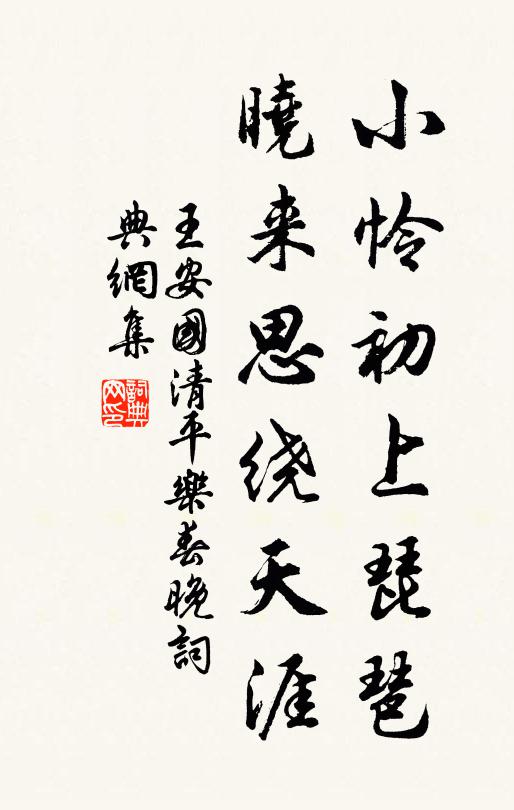 小怜初上琵琶
曉来思绕天涯
王安國清平樂春晚詞
典網集
詞典网印